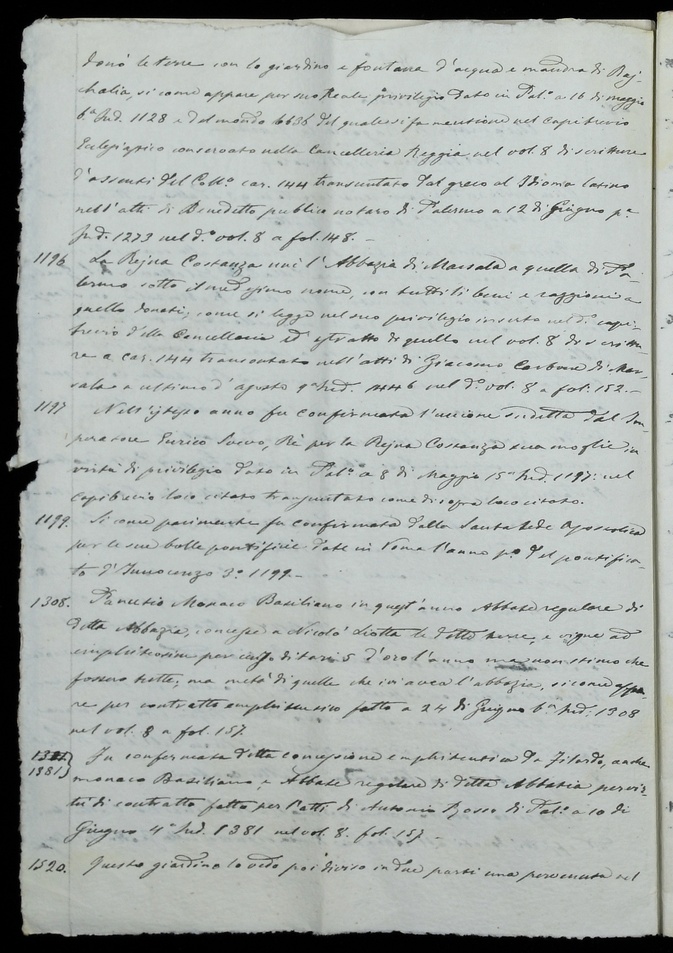 donò le terre con lo giardino e fontana d'acqua e mandra di Raj-
chalia, si come appare per suo Reale privilegio dato in Pal.º a 16 di maggio
6.ª Ind. 1128 e del mondo 6636 del quale si fa menzione nel Capibrevio
conservato nella Cancelleria Reggia nel vol. 8 di scritture
d'assenti del Coll.º car. 144 transuntato dal greco al Idioma latino
nell'atti di Benedetto publico notaro di Palermo a 12 di Giugno p.ª
Ind. 1273 nel d.º vol. 8 a fol. 148. –
1196 La Rejna Costanza unì l'Abbazia di Marsala a quella di Pa-
lermo sotto il med esimo nome, con tutti li beni e raggioni a
quello donati; come si legge nel suo privilegio inserto nel d.º capi-
brevio della Cancelleria ed estratto di quello nel vol. 8 di scrittu-
re a car. 144 transontato nell'atti di Giacomo Carbone di Mar-
sala a ultimo d'agosto 9.ª Ind. 1446 nel d.º vol. 8 a fol. 152. –
1197 Nell'istesso anno fu confermata l'unione sudetta dal Im-
peratore Enrico Suevo, Rè per la Rejna Costanza sua moglie in
virtù di privilegio dato in Pal.º a 8 di Maggio 15.ª Ind. 1197: nel
capibrevio loco citato transuntato come di sopra loco citato.
1199. Si come parimente fu confermata dalla Santa Sede Apostolica
per le sue bolle pontificie date in Roma l'anno p.º del pontifica-
to d'Innocenzo 3.º 1199 –
1308. Monaco Basiliano in quest'anno Abbate regulare di
detta Abbazia, concesse a Nicolò Liotta le dette terre, e vigne ad
emphiteosim per censo di tarì 5 d'oro l'anno ma non stimo che
fossero tutte, ma metà di quelle che ivi avea l'abbazia, si come appa-
re per contratto emphiteutico fatto a 24 di Giugno 6.ª Ind. 1308
nel vol. 8 a fol. 157.
1381} Fu confermata detta concessione emphiteutica da Filardo, anche
monaco Basiliano e Abbate regulare di detta Abbatia per vir-
tù di contratto fatto per l'atti di Antonio Rosso di Pal.º a 10 di
Giugno 4.ª Ind. 1381 nel vol. 8. fol. 157. –
1520. Questo giardino lo vedo poi diviso in due parti una pervenuta nel